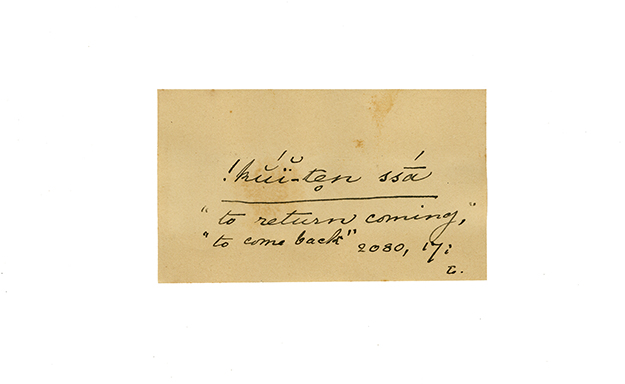 !kŭ́ĭ-tẹn ssā́
"to return coming,"
"to come back" 2080, 17: